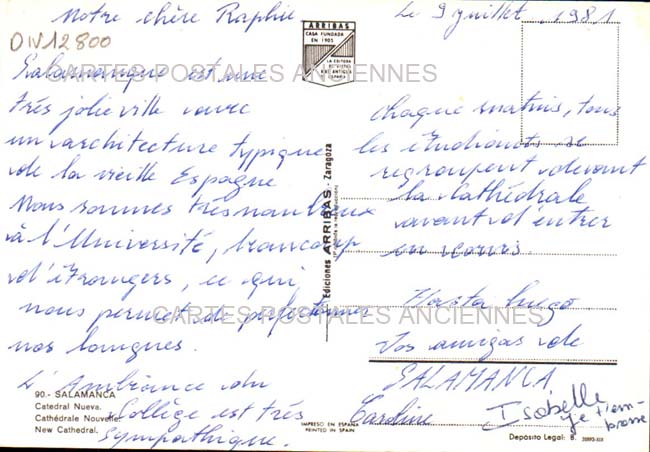 Notre chère Raphie
Le 9 juillet, 1981
DIV12800
ARRIBAS
CASA FUNDADA
EN 1905
LA EDITORA
DE POSTALES
MAS ANTIGUA
ESPAÑA
CARTES POSTALES ANCIENNES
Salamanque est une
très jolie ville avec
un architecture typique
de la vieille Espagne
Nous sommes très nombreux
à l'Université, beaucoup
d'étrangers, ce qui
nous permet de perfectionner
nos langues.
L'Ambiance du
Collège est très
sympathique.
chaque matins, tous
les étudiants se
regroupent devant
la Cathédrale
avant d'entrer
en cours.
Hasta luego
Vos amigas de
SALAMANCA
Caroline
Isabelle
je t'em-
brasse
CARTES POSTALES ANCIENNES
Ediciones ARRIBAS - Zaragoza
90.- SALAMANCA
Catedral Nueva.
Cathédrale Nouvelle.
New Cathedral.
IMPRESO EN ESPAÑA
PRINTED IN SPAIN
Depósito Legal: B.